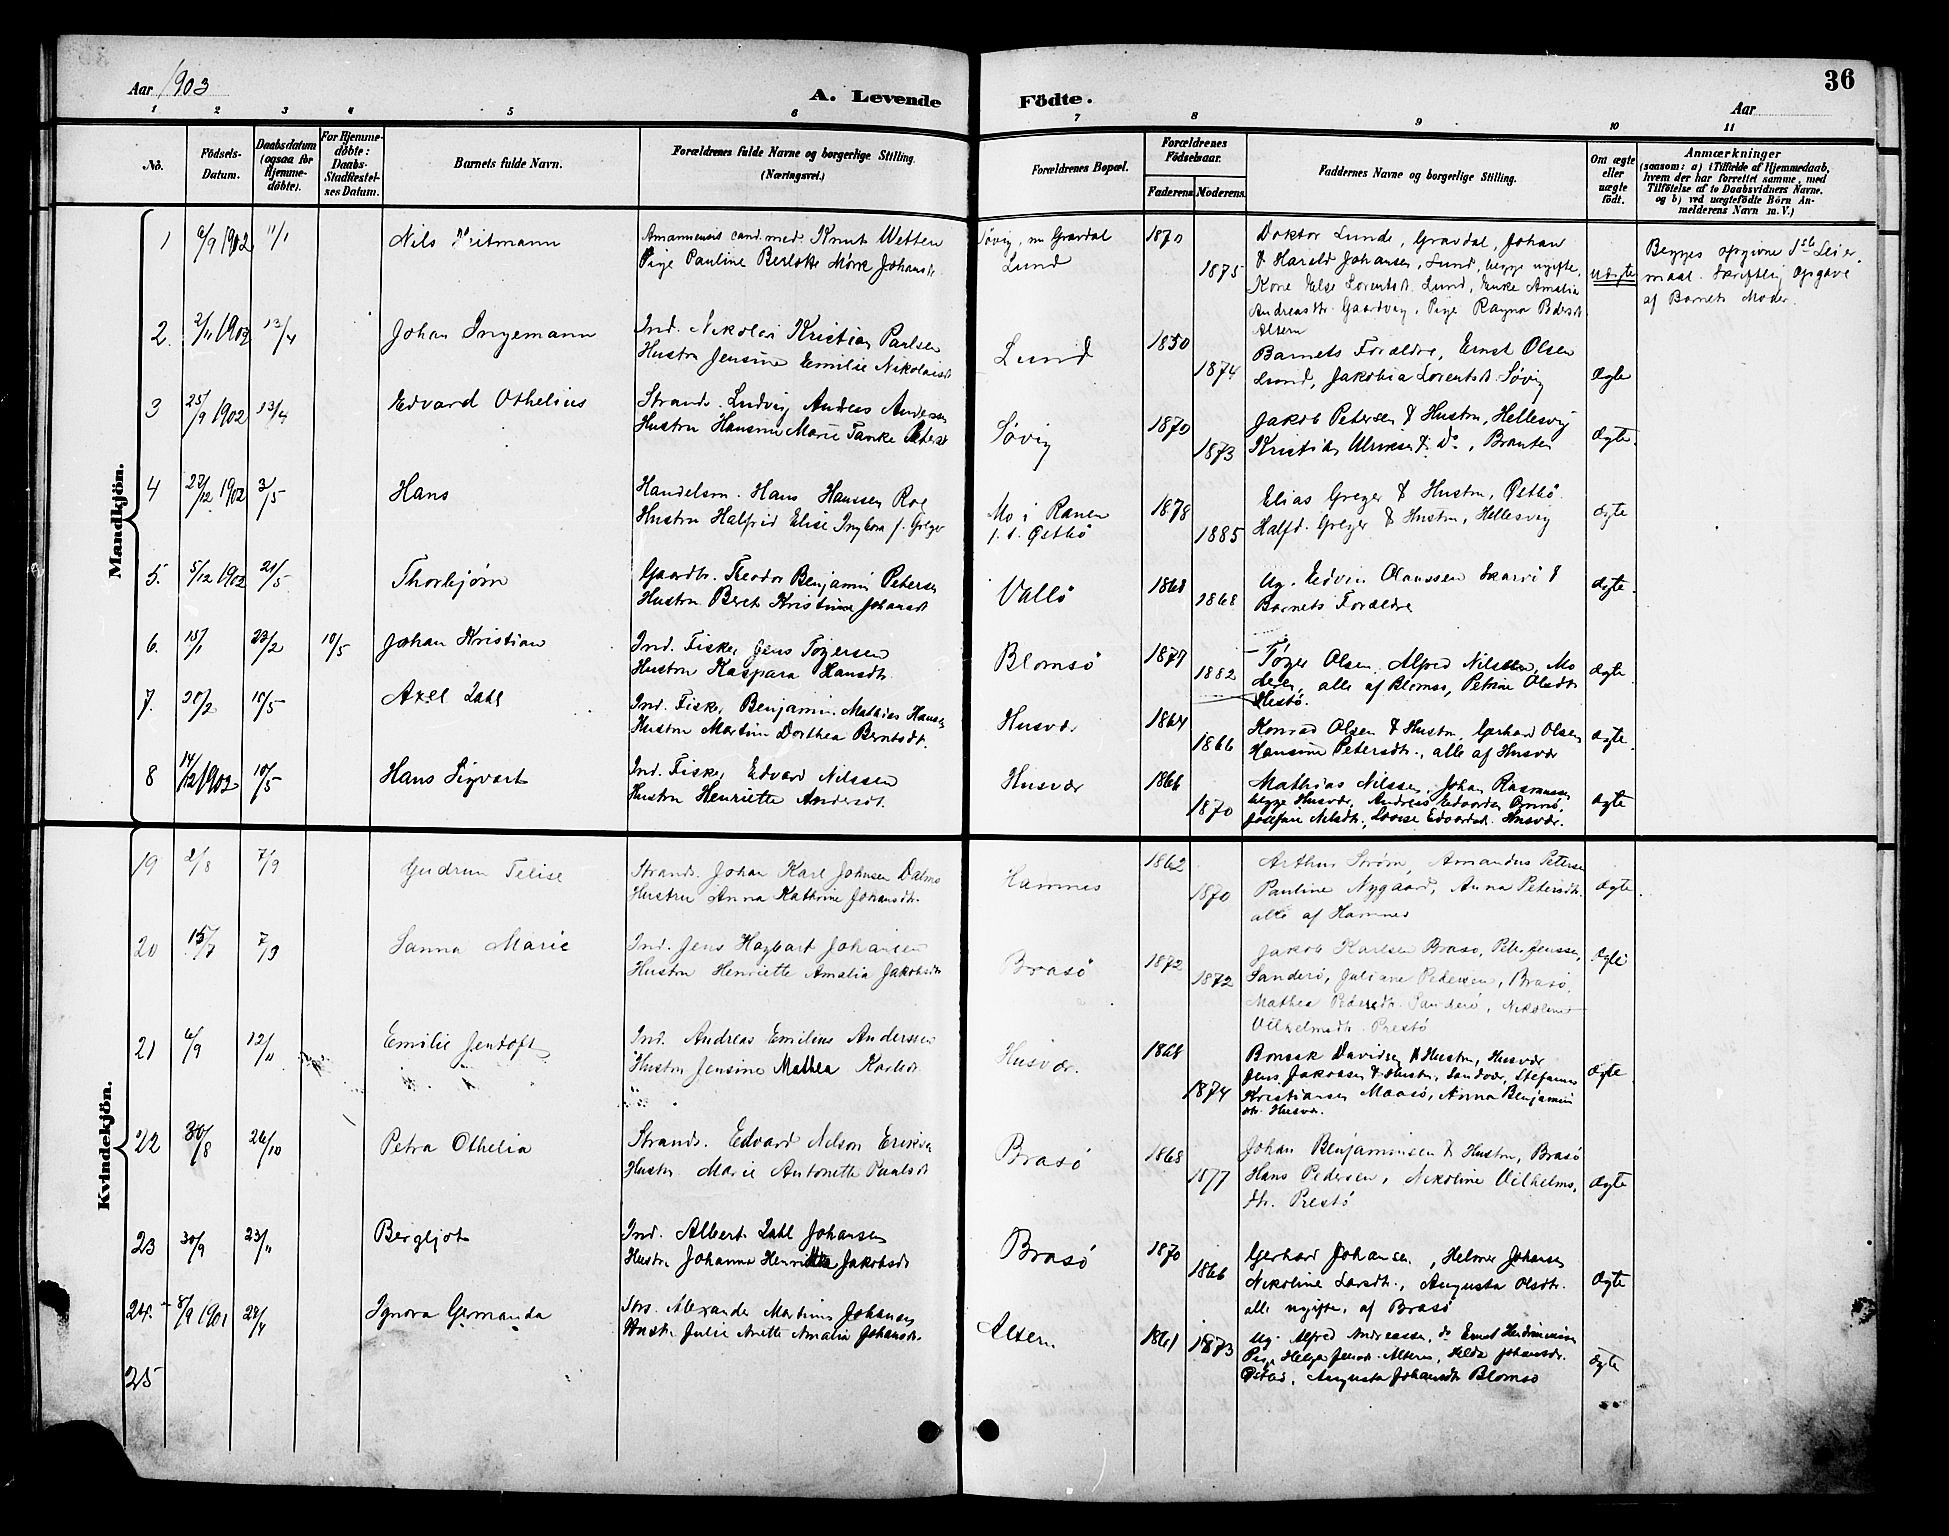 Aar 1903
A. Levende
Födte.
Aar
36
1 2 3 4 5 6 7 8 9 10 11
No.
Födsels-Datum.
Daabsdatum (ogsaa for Hjemmedöbte).
For Hjemmedöbte: Daabs-Stadfæstelses Datum.
Barnets fulde Navn.
Forældrenes fulde Navne og borgerlige Stilling.
(Næringsvei.)
Forældrenes Bopæl.
Forældrenes Födselsaar.
Faderens.
Moderens.
Faddernes Navne og borgerlige Stilling.
Om ægte eller uægte födt.
Anmærkninger
(saasom: a) i Tilfælde af Hjemmedaab, hvem der har forrettet samme, med Tilföielse af to Daabsvidners Navne. og b) ved uægtefödte Börn Anmelderens Navn m. V.)
Mandkjön.
1 6/9 1902 11/1 Nils Heitmann
Amanuensis cand. med. Knut Wetten
Pige Pauline Berlotte Mørk Johansdt.
Søvig, nu Gravdal
Lund
1870 1875
Doktor Lunde, Gravdal, Johan
& Harald Johansen, Lund, begge ugifte,
Kone Else Lorentsdt. Lund, Enke Amalia
Andreasdtr. Gaardvig, Pige Ragna
Altern
uægte
Begges opgivne 1ste Leier
maal. Skriftlig Opgave
af Barnets Moder.
2. 2/11 1902 13/4 Johan Ingemann
Ind. Nikolai Kristian Paulsen
Hustru Jensine Emilie Nikolaisdt
Lund
1850 1874
Barnets Forældre, Ernst Olsen
Lund, Jakobia Lorentsdt. Søvig
ægte
3 25/9 1902 13/4 Edvard Othelius
Strands. Ludvig Andreas Andersen
Hustru Hansine Marie Tanke Petersdt
Søvig
1870 1873
Jakob Petersen & Hustru, Hellesvig
Kristian Ulriksen & Do, Branten
ægte.
4 23/12 1902 3/5 Hans
Handelsm. Hans Hanssen Roe
Hustru Halfrid Elise Ingeborg f. Greger
Mo i Ranen
f. t. Østbø
1878 1885
Elias Greger & Hustru, Østbø.
Halfd. Greger & Hustru, Hellesvig
ægte
5. 5/12 1902 21/5 Thorbjørn
Gaardbr. Teodor Benjamin Petersen
Hustru Beret Kristine Johansdt
Vallø
1868 1868
Ug. Edvin Olaussen Skarvø &
Barnets Forældre
ægte.
6. 15/1 23/2 10/5 Johan Kristian
Ind. Fisker Jens Tøgersen
Hustru Kaspara Hansdt.
Blomsø
1877 1882
Tøger Olsen, Alfred Nilssen, Mo
deren, alle af Blomsø, Petrine Olsdt.
Hestø.
ægte.
7. 20/2 10/5 Axel Dahl
Ind. Fisker Benjamin Mathias Hansen
Hustru Martine Dorthea Berntsdt.
Husvær
1864 1866
Konrad Olsen & Hustru, Gerhard Olsen
Hansine Petersdt., alle af Husvær
ægte.
8 14/12 1902 10/5 Hans Sigvart
Ind. Fisker Edvard Nilssen
Hustru Henriette Andersdt.
Husvær
1866 1870
Mathias Nilssen, Johan Rasmussen
begge Husvær, Andreas Edvardsen
Josefine Nilsdt., Lovise Edvardsdt. Husvær.
ægte
Kvindekjön.
19 2/8 7/9 Gudrun Felise
Strands. Johan Karl Johnsen Dalmo
Hustru Anna Kathrine Johansdt.
Hamnes
1862 1870
Arthur Strøm, Amandus Petersen
Pauline Nygaard, Anna Petersdt.
alle af Hamnes
ægte.
20 15/7 7/9 Sanna Marie
Ind. Jens Hagbart Johansen
Hustru Henriette Amalia Jakobsdt
Brasø
1872 1872
Jakob Karlsen Brasø, Peter Jenssen,
Sanderø, Juliane Pedersen, Brasø,
Mathea Pedersdt. Sanderø, Nikoline
Vilhelmsdt. Prestø
ægte
21 6/9 12/11 Emilie Jentoft
Ind. Andreas Emilius Anderssen
Hustru Jensine Mathea Karlsdt.
Husvær.
1868 1874
Bonsak Davidsen & Hustru, Husvær
Jens Jakobsen & Hustru, Sandvær, Stefanus
Kristiansen Maasø, Anna Benjamin
dt. Husvær.
ægte
22 30/8 26/10 Petra Othelia
Strands. Edvard Nilson Eriksen
Hustr. Marie Antonette Paulsdt
Brasø
1868 1877
Johan Benjaminsen & Hustru, Brasø
Hans Pedersen, Nikoline Vilhelms,
dt. Prestø
ægte
23 30/9 23/11 Bergljot
Ind. Albert Dahl Johansen
Hustru Johanna Henriette Jakobsdt
Brasø
1870 1866
Gerhard Johansen, Helmer Johansen
Nikoline Larsdt., Augusta Olsdt.
alle ugifte, af Brasø
ægte
24. 8/9 1901 28/4 Ignora Germanda
Alexander Martinus Johansen
Hustr. Julie Anette Amalia Johansdt.
Altern
1861 1873
Ug. Alfred Andreassen, do Ernst
Pige Helga Jensdt. Altern, Hilda Johansdt.
Østad, Augusta Johansdt. Blomsø
ægte
25